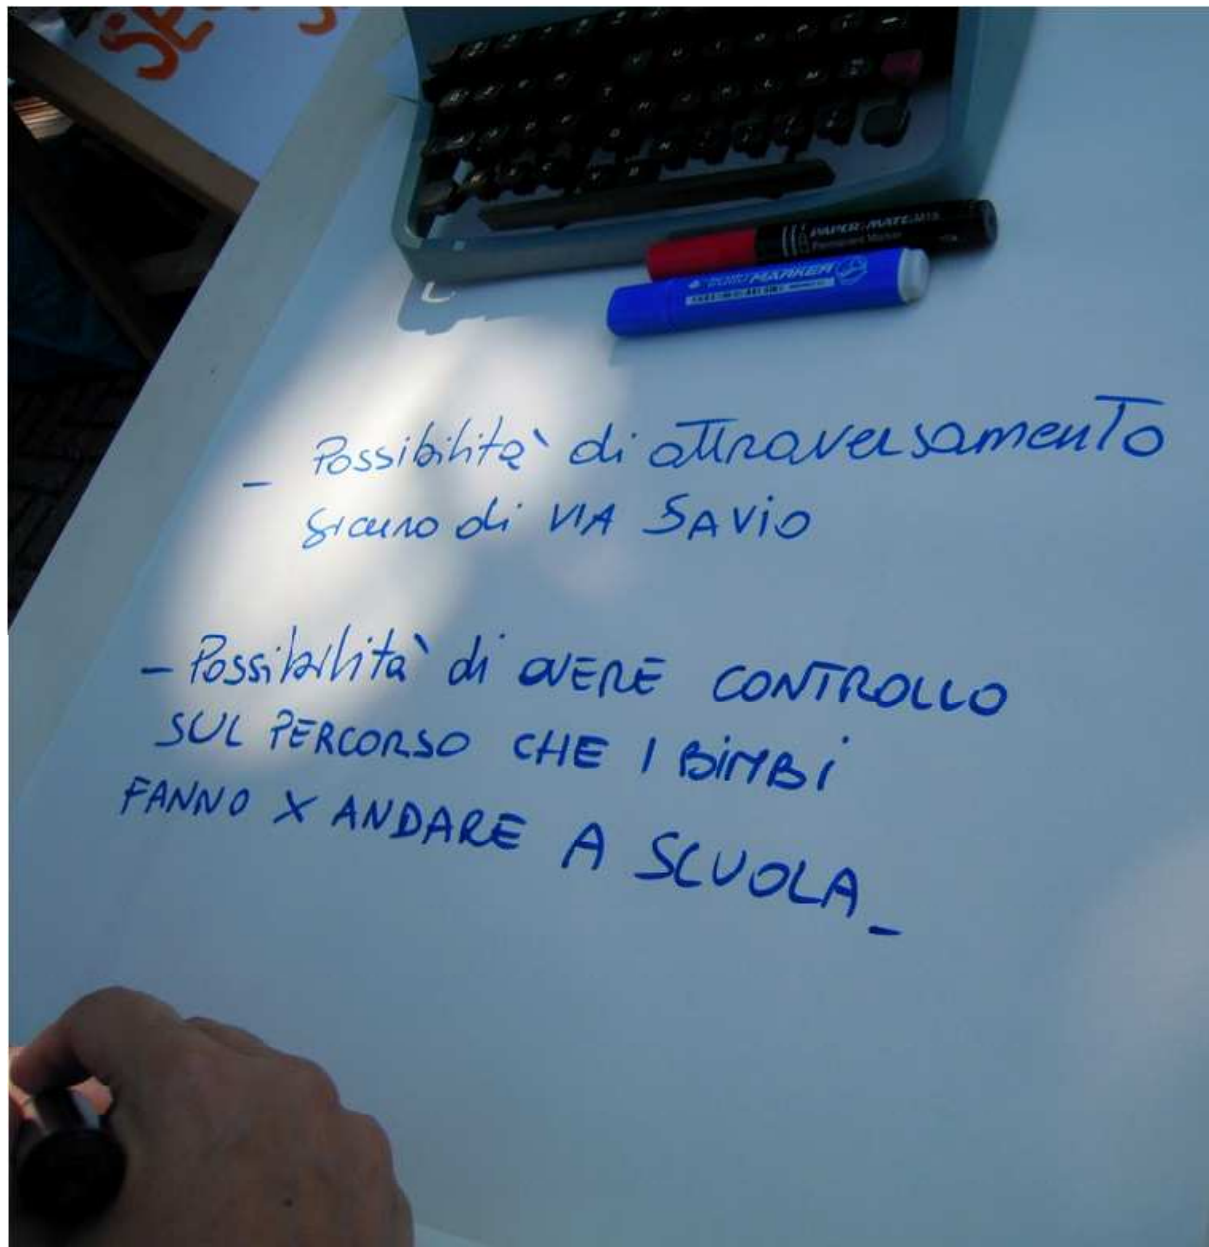 SE
PAPER·MATE M15
Permanent Marker
MARKER
- Possibilità di attraversamento
sicuro di VIA SAVIO
- Possibilità di AVERE CONTROLLO
SUL PERCORSO CHE I BIMBI
FANNO X ANDARE A SCUOLA_